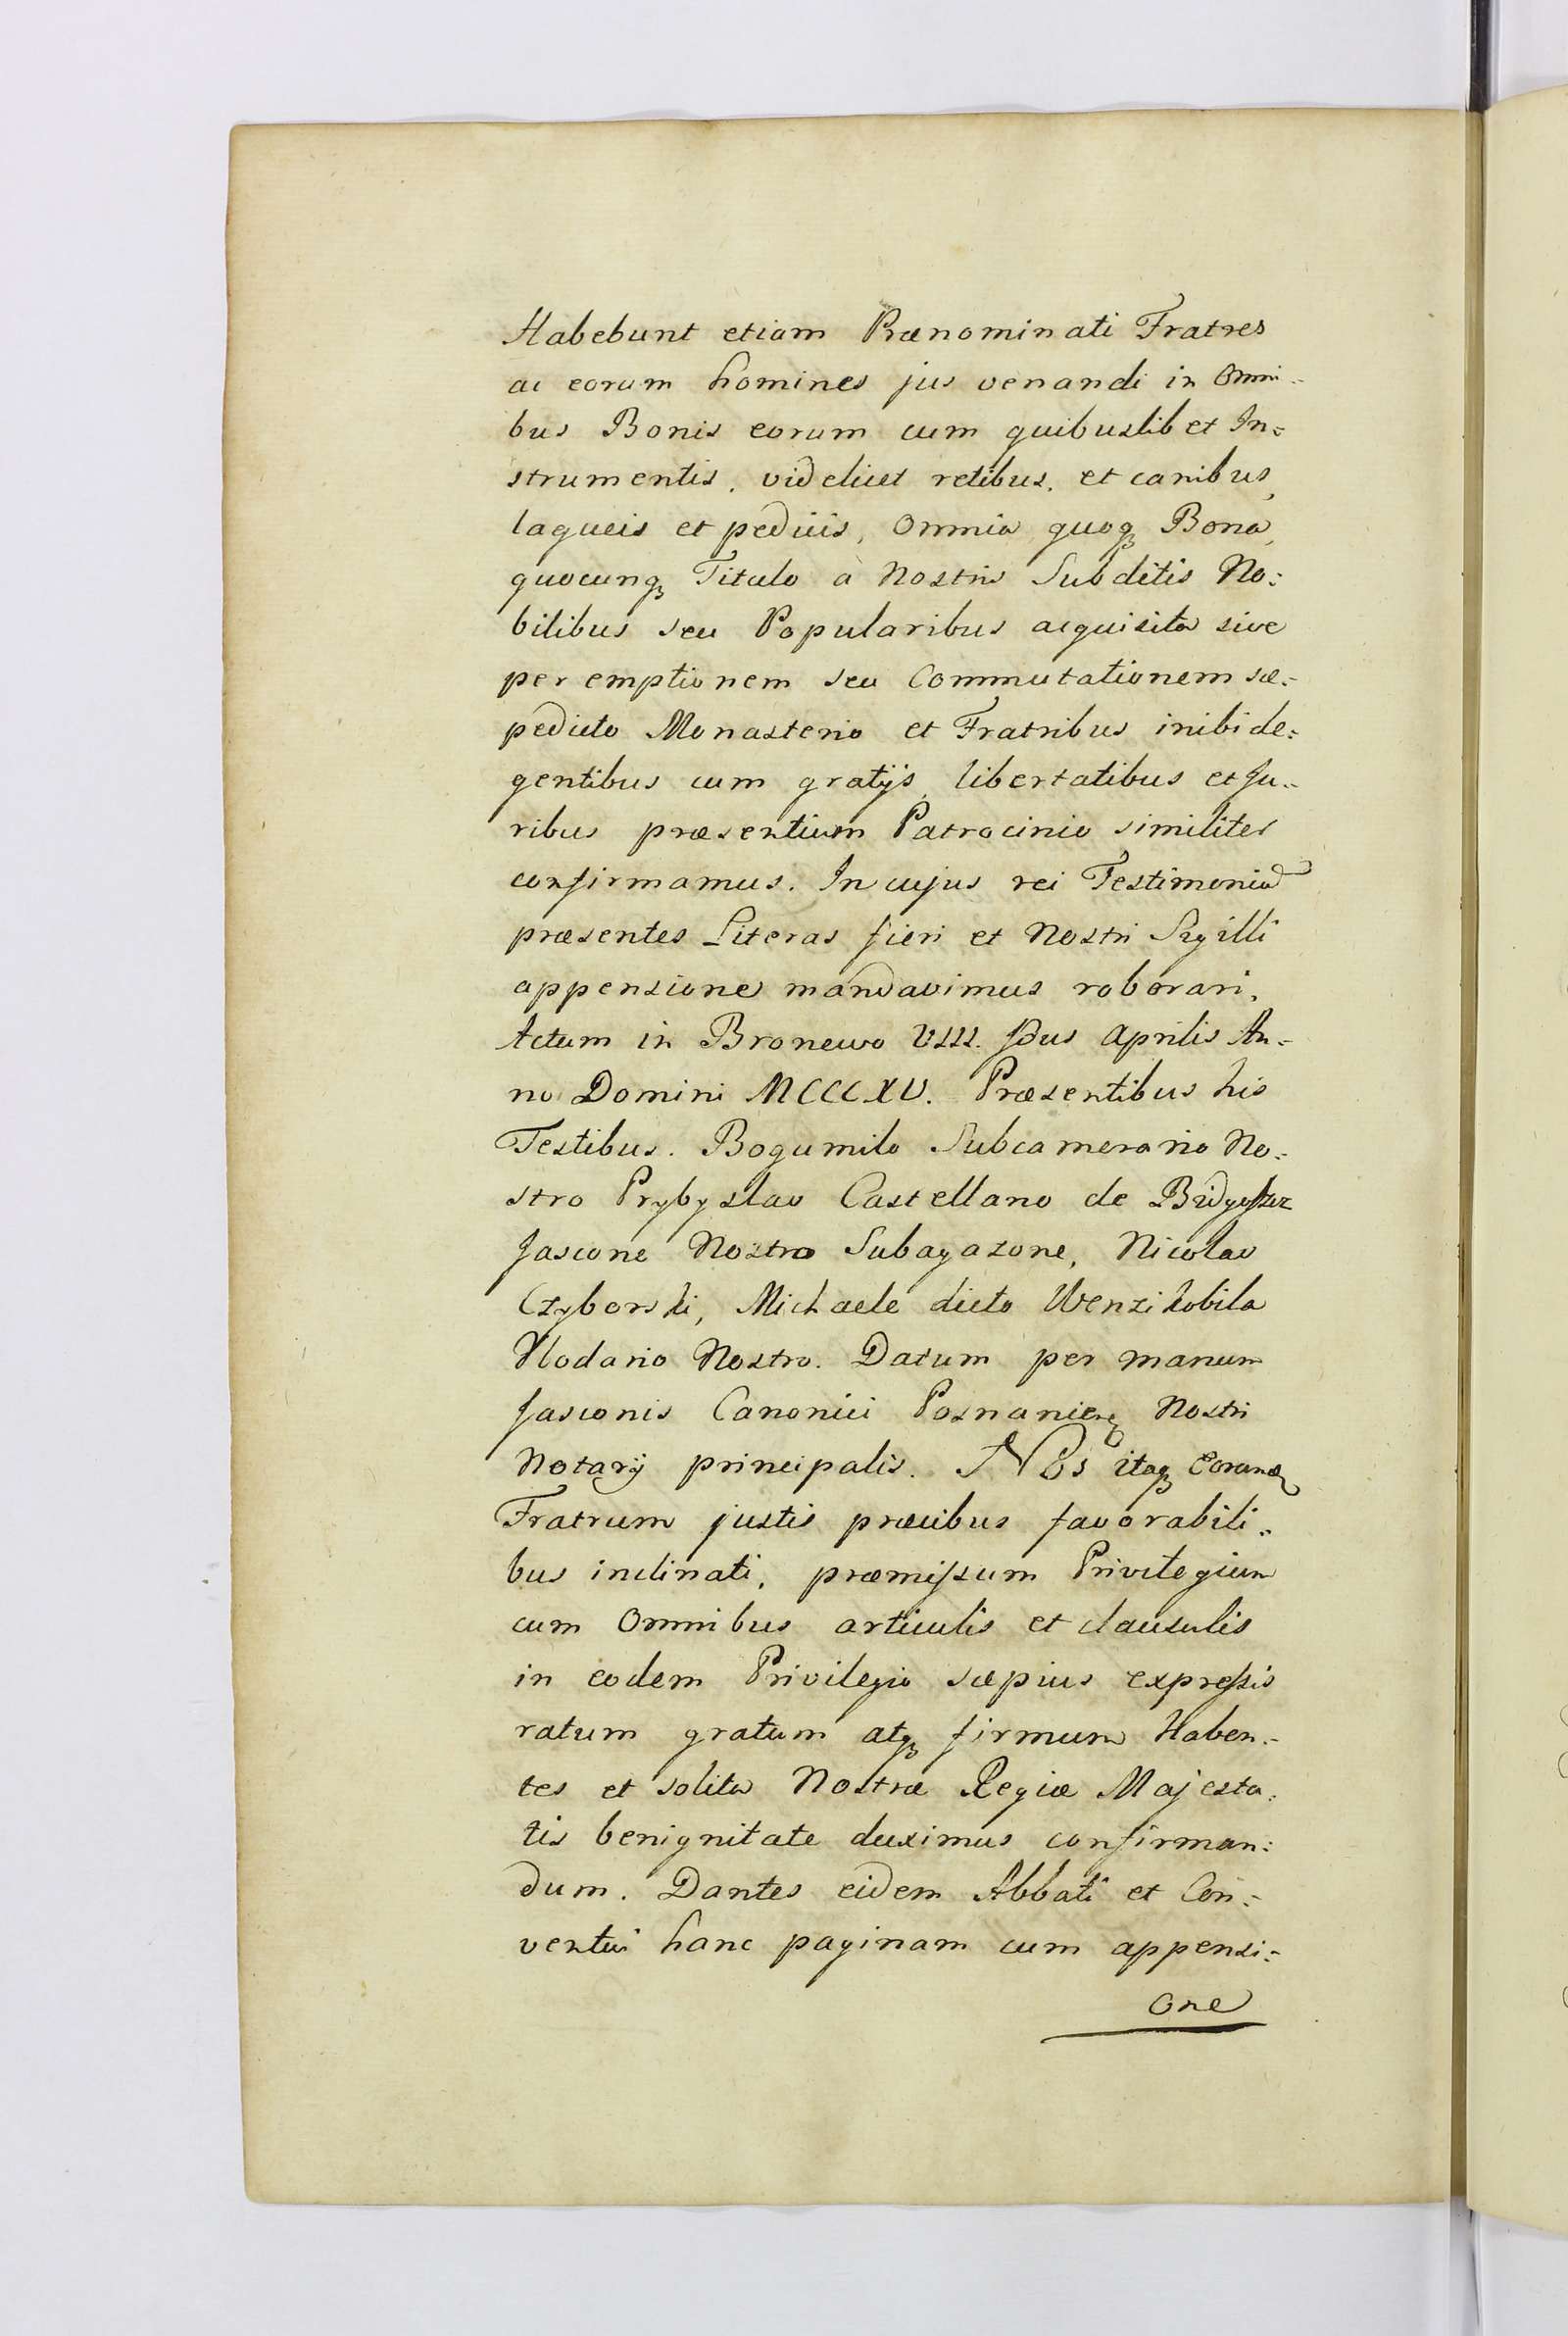 Habebunt etiam Prænominati Fratres
ac eorum homines jus venandi in Omni=
bus Bonis eorum cum quibuslibet In=
strumentis, videlicet retibus, et canibus,
laqueis et pedicis, Omnia quoqꝫ Bona,
quocunqꝫ Titulo a Nostris Subditis No=
bilibus seu Popularibus acquisita sive
per emptionem seu Commutationem sæ=
pedicto Monasterio et Fratribus inibi de=
gentibus cum gratijs, libertatibus et Ju=
ribus præsentium Patrocinio similiter
confirmamus. In cujus rei Testimoniũ
præsentes Literas fieri et Nostri Sigilli
appensione mandavimus roborari.
Actum in Bronewo VIII. Idus Aprilis An=
no Domini MCCCXV. Præsentibus his
Testibus. Bogumilo Subcamerario No=
stro Prybyslao Castellano de
Jascone Nostro Subagazone, Nicolao
Czyborski, Michaele dicto Wenzikobila
Wlodario Nostro. Datum per manum
Jasconis Canonici Posnanienꝫ Nostri
Notarij principalis. NOs itaqꝫ Eorundꝫ
Fratrum justis præcibus favorabili=
bus inclinati, præmissum Privilegium
cum Omnibus articulis et clausulis
in eodem Privilegio sæpius expressis
ratum gratum atqꝫ firmum Haben=
tes et solita Nostræ Regiæ Majesta=
tis benignitate duximus confirman=
dum. Dantes eidem Abbati et Con=
ventui hanc paginam cum appensi=
One